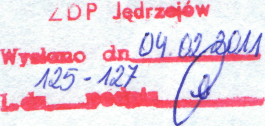 ZDP Jędrzejów
Wysłano dn 04.02.2011
125-127
L.dz. podpis